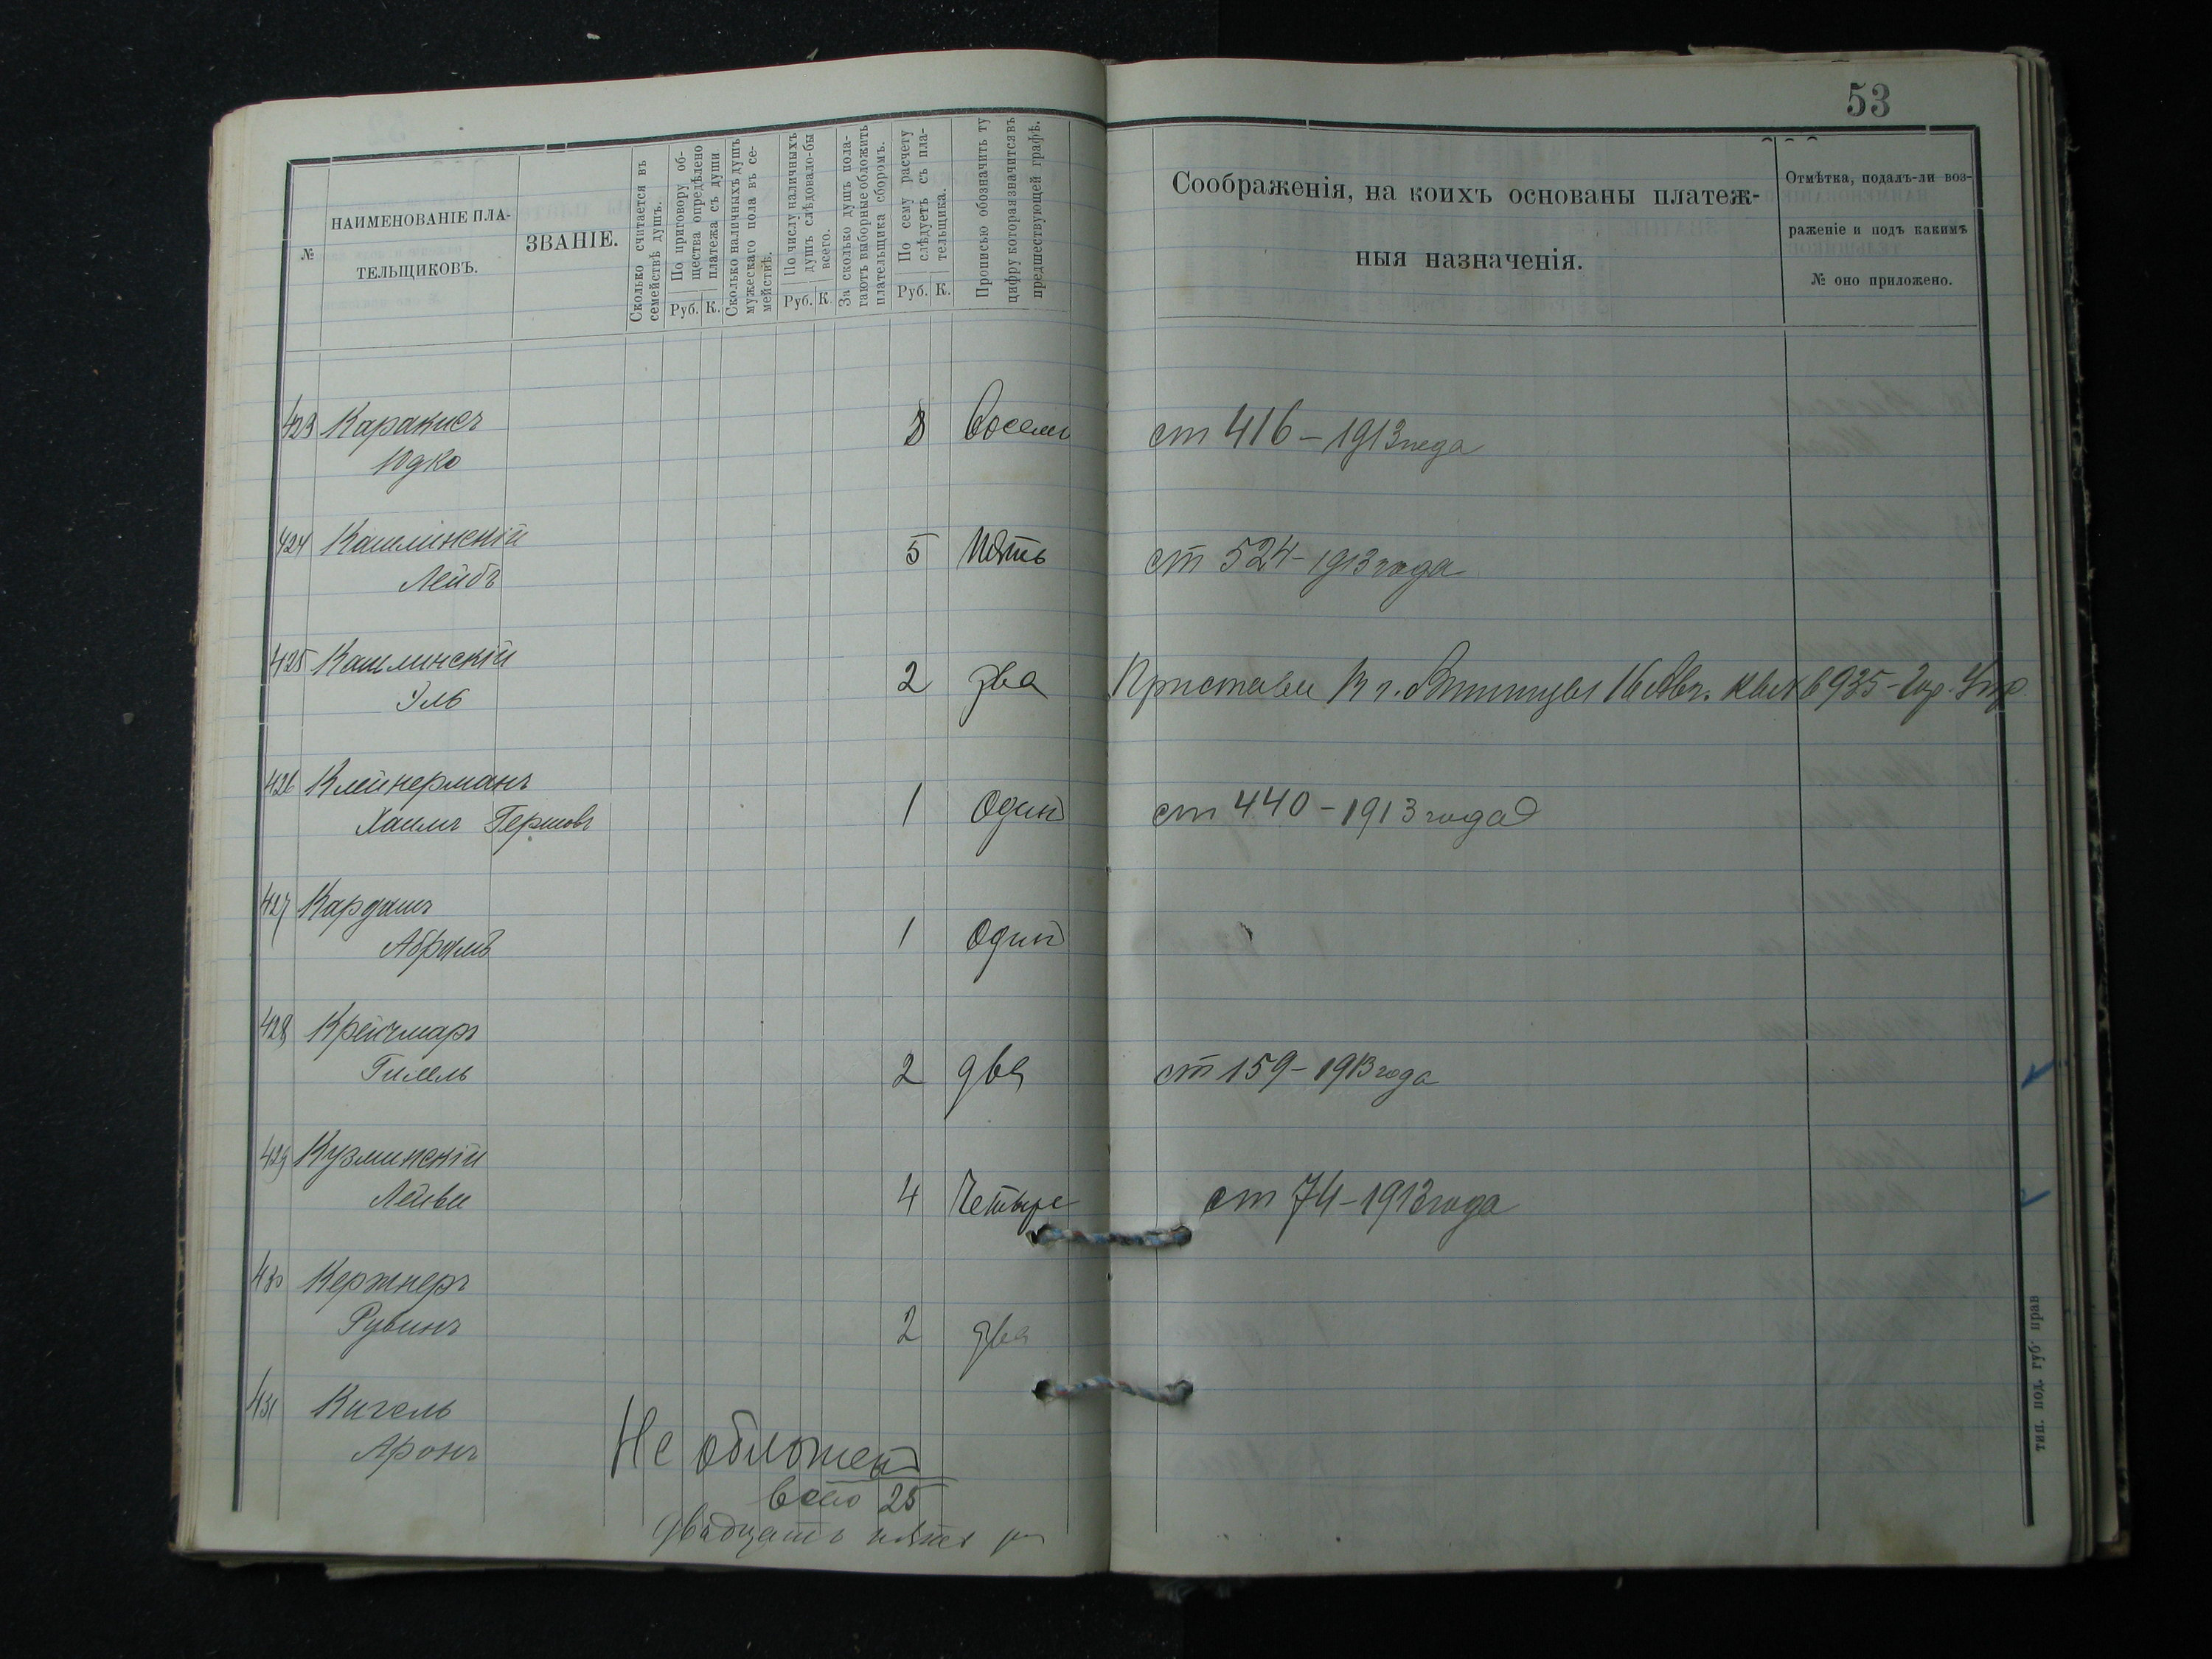 53
№
НАИМЕНОВАНІЕ ПЛА-
ТЕЛЬЩИКОВЪ.
ЗВАНІЕ.
Сколько считается въ
семействѣ душъ.
По приговору об-
щества опредѣлено
платежа съ души
Руб. К.
Сколько наличныхъ душъ
мужескаго пола въ се-
мействѣ.
По числу наличныхъ
душъ слѣдовало-бы
всего.
Руб. К
За сколько душъ пола-
гаютъ выборные обложить
плательщика сборомъ.
По сему расчету
слѣдуетъ съ пла-
тельщика.
Руб. К.
Прописью обозначить ту
цифру которая значится въ
предшествующей графѣ.
Соображенія, на коихъ основаны платеж-
ныя назначенія.
Отмѣтка, подалъ-ли воз-
раженіе и подъ какимъ
№ оно приложено.
423 Каракисъ 8 Восемь ст 416 - 1913 года
Юдко
424 Кашлинскій 5 пять ст 524 - 1913 года
Лейбъ
425 Кашлинскій 2 два 935 -
Уль
426 Клейнерманъ
Хаимъ Гершовъ 1 Один ст 440 - 1913 года
427 Кардашъ
Абрамъ 1 Один
428 Крейчмаръ
Гилель 2 два ст 159 - 1913 года
429 Кузминскій
Лейви 4 Четыре ст 74 - 1913 года
430 Кержнеръ
Рувинъ 2 два
431 Кигель
Аронъ Не обложен
всего 25
двадцать пять р
тип. под. губ. прав